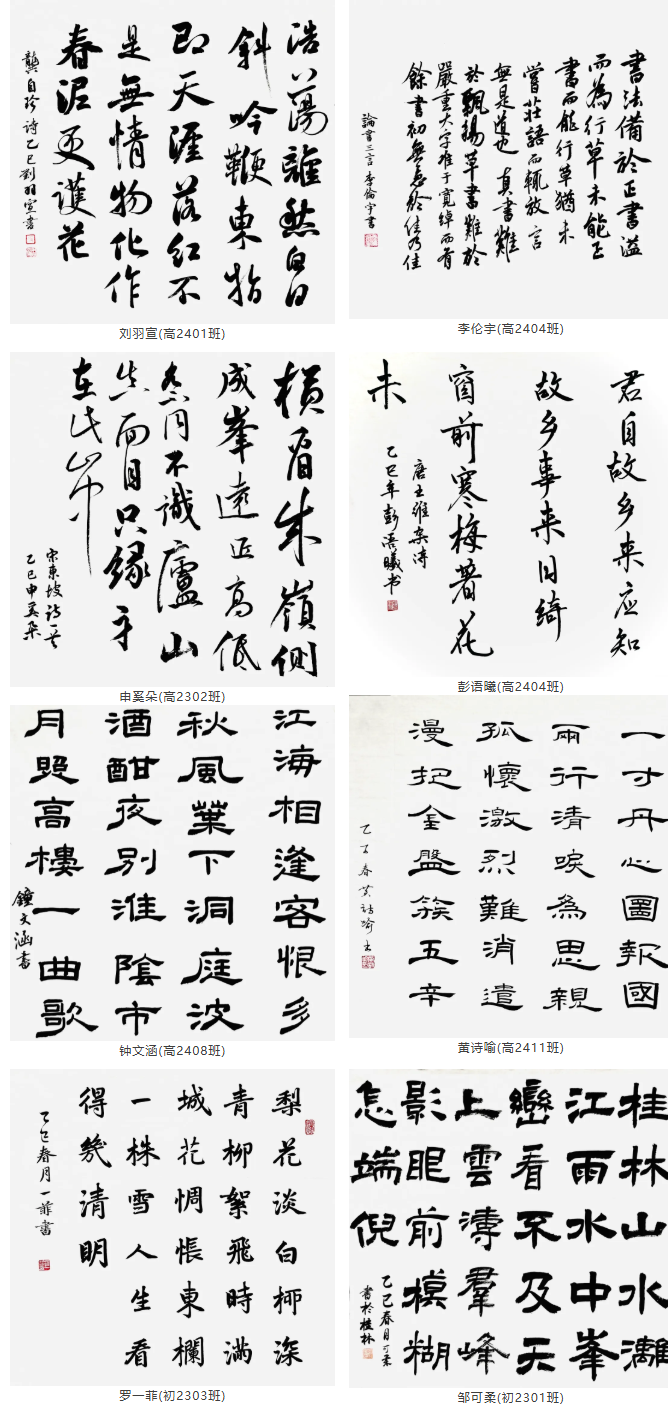 浩蕩離愁白日
斜吟鞭東指
即天涯落紅不
是無情物化作
春泥更護花
龔自珍詩乙巳劉羽宣書
刘羽宣(高2401班)
書法備於正書溢
而為行草未能正
書而能行草猶未
嘗莊語而輒放言
無是道也真書難
於飄揚草書難於
嚴重大字难于寬綽而有
餘書初無意於佳乃佳
論書三言李倫宇書
李伦宇(高2404班)
橫看成嶺側
成峯遠近高低
各不同不識廬山
真面目只緣身
在此山中
宋東坡詩一首
乙巳申奚朵
申奚朵(高2302班)
君自故乡来应知
故乡事来日绮
窗前寒梅著花
未
唐王维杂诗
乙巳年彭语曦书
彭语曦(高2404班)
江海相逢客恨多
秋風葉下洞庭波
酒酣夜別淮陰市
月照高樓一曲歌
鐘文涵書
钟文涵(高2408班)
一寸丹心圖報國
兩行清淚為思親
孤懷激烈難消遣
漫把金盤簇五辛
乙巳春黄詩喻書
黄诗喻(高2411班)
梨花淡白柳深
青柳絮飛時滿
城花惆悵東欄
一株雪人生看
得幾清明
乙巳春月一菲書
罗一菲(初2303班)
桂林山水灕
江雨水中峯
巒看不及天
上雲溥羣峰
影眼前模糊
怎端倪
乙巳春月可柔
書於桂林
邹可柔(初2301班)